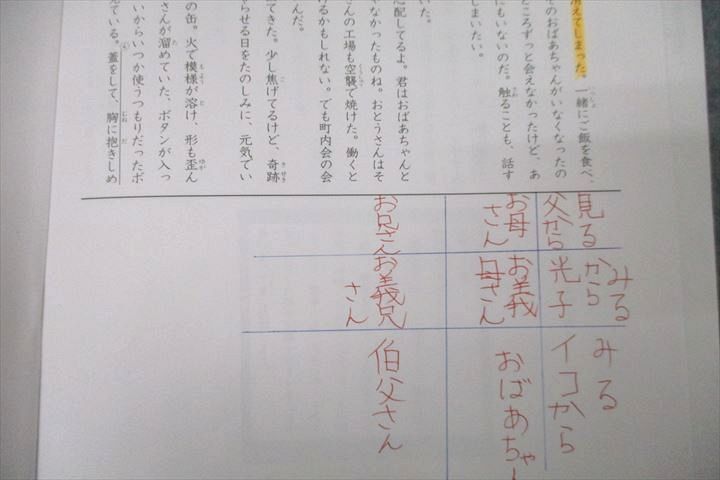 消えてしまった。一緒にご飯を食べ、
そのおばあちゃんがいなくなったの
ところずっと会えなかったけど、あ
にもいないのだ。触ることも、話す
しまいたい。
いた。
心配してるよ。君はおばあちゃんと
なかったものね。おとうさんはそ
さんの工場も空襲で焼けた。働くと
けるかもしれない。でも町内会の会
んだ。
てきた。少し焦げてるけど、奇跡
らせる日をたのしみに、元気でい
の缶。火で模様が溶け、形も歪ん
さんが溜めていた、ボタンが入っ
いからいつか使うつもりだったボ
ている。④蓋をして、胸に抱きしめ
見る
父から
お母
さん
お兄さん
みる
から
光子
お義
母さん
お義兄
さん
みる
イコから
おばあちゃん
伯父さん